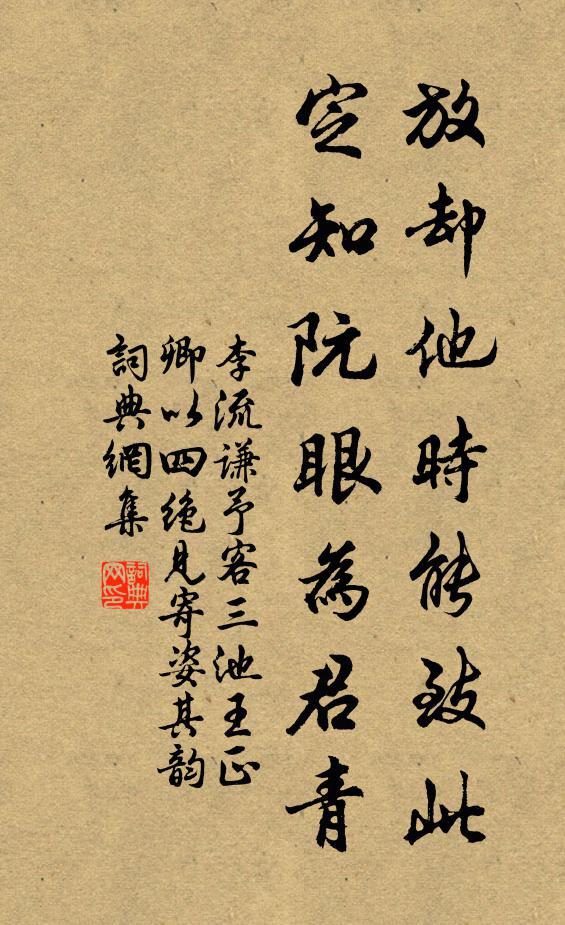 放却他時能致此
定知阮眼為君青
李流謙予客三池王正
卿以四絶見寄姿其韵
詞典網集
詞典網印